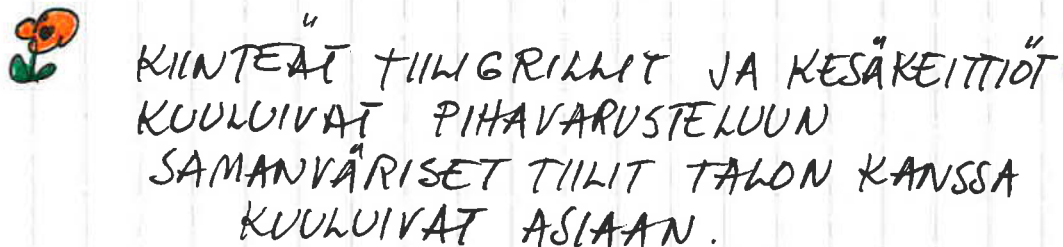 KIINTEÄT TIILIGRILLIT JA KESÄKEITTIÖT
KUULUIVAT PIHAVARUSTELUUN
SAMANVÄRISET TIILIT TALON KANSSA
KUULUIVAT ASIAAN.